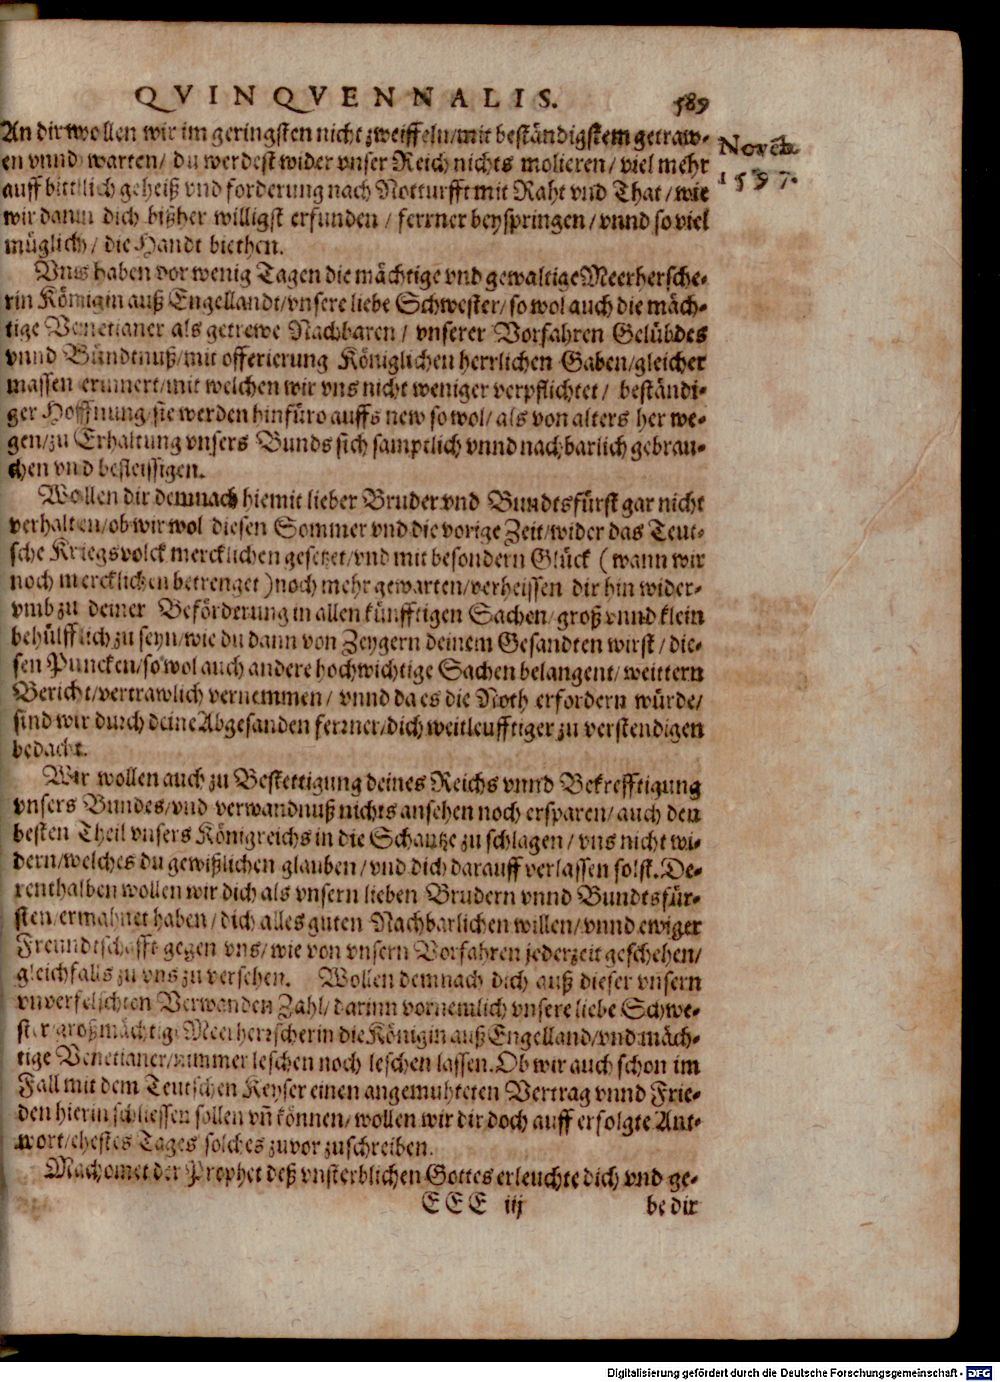 QVINQVENNALIS. 589
Novēb.
1597.
An dir wollen wir im geringsten nicht zweiffeln/mit beständigstem getraw-
en vnnd warten/ du werdest wider vnser Reich nichts molieren/ viel mehr
auff bittlich geheiß vnd forderung nach Notturfft mit Raht vnd That/ wie
wir dann dich bißher willigst erfunden/ ferrner beyspringen/ vnnd so viel
müglich/ die Handt biethen.
Vns haben vor wenig Tagen die mächtige vnd gewaltige Meerhersche-
rin Königin auß Engellandt/vnsere liebe Schwester/ so wol auch die mäch-
tige Venetianer als getrewe Nachbaren/ vnserer Vorfahren Gelübdes
vnnd Bündtnuß/mit offerierung Königlichen herrlichen Gaben/gleicher
massen erinnert/mit welchen wir vns nicht weniger verpflichtet/ beständi-
ger Hoffnung/sie werden hinfüro auffs new so wol/ als von alters her we-
gen/zu Erhaltung vnsers Bunds sich samptlich vnnd nachbarlich gebrau-
chen vnd befleissigen.
Wollen dir demnach hiemit lieber Bruder vnd Bundtsfürst gar nicht
verhalten/ob wir wol diesen Sommer vnd die vorige Zeit/wider das Teut-
sche Kriegsvolck mercklichen gesetzet/vnd mit besondern Glück (wann wir
noch mercklichen betrenget) noch mehr gewarten/verheissen dir hin wider-
vmb zu deiner Beförderung in allen künfftigen Sachen/groß vnnd klein
behülfflich zu seyn/wie du dann von Zeygern deinem Gesandten wirst/ die-
sen Puncken/so wol auch andere hochwichtige Sachen belangent/weittern
Bericht/vertrawlich vernemmen/ vnnd da es die Noth erfordern würde/
sind wir durch deine Abgesanden ferrner/dich weitleufftiger zu verstendigen
bedacht.
Wir wollen auch zu Bestettigung deines Reichs vnnd Bekrefftigung
vnsers Bundes/vnd verwandnuß nichts ansehen noch ersparen/auch den
besten Theil vnsers Königreichs in die Schantze zu schlagen/ vns nicht wi-
dern/welches du gewißlichen glauben/vnd dich darauff verlassen solst. De-
renthalben wollen wir dich als vnsern lieben Brudern vnnd Bundtsfür-
sten/ermahnet haben/dich alles guten Nachbarlichen willen/vnnd ewiger
Freundtschafft gegen vns/wie von vnsern Vorfahren jederzeit geschehen/
gleichfalls zu vns zu versehen. Wollen demnach dich auß dieser vnsern
vnverfelschten Verwanden Zahl/darinn vornemlich vnsere liebe Schwe-
ster/großmächtige Meerherrscherin die Königin auß Engelland/vnd mäch-
tige Venetianer/nimmer leschen noch leschen lassen. Ob wir auch schon im
Fall mit dem Teutschen Keyser einen angemuhteten Vertrag vnnd Frie-
den hierin schliessen sollen vñ können/wollen wir dir doch auff erfolgte Ant-
wort/ehestes Tages solches zuvor zuschreiben.
Machomet der Prophet deß vnsterblichen Gottes erleuchte dich vnd ge-
EEE iij be dir
Digitalisierung gefördert durch die Deutsche Forschungsgemeinschaft - DFG